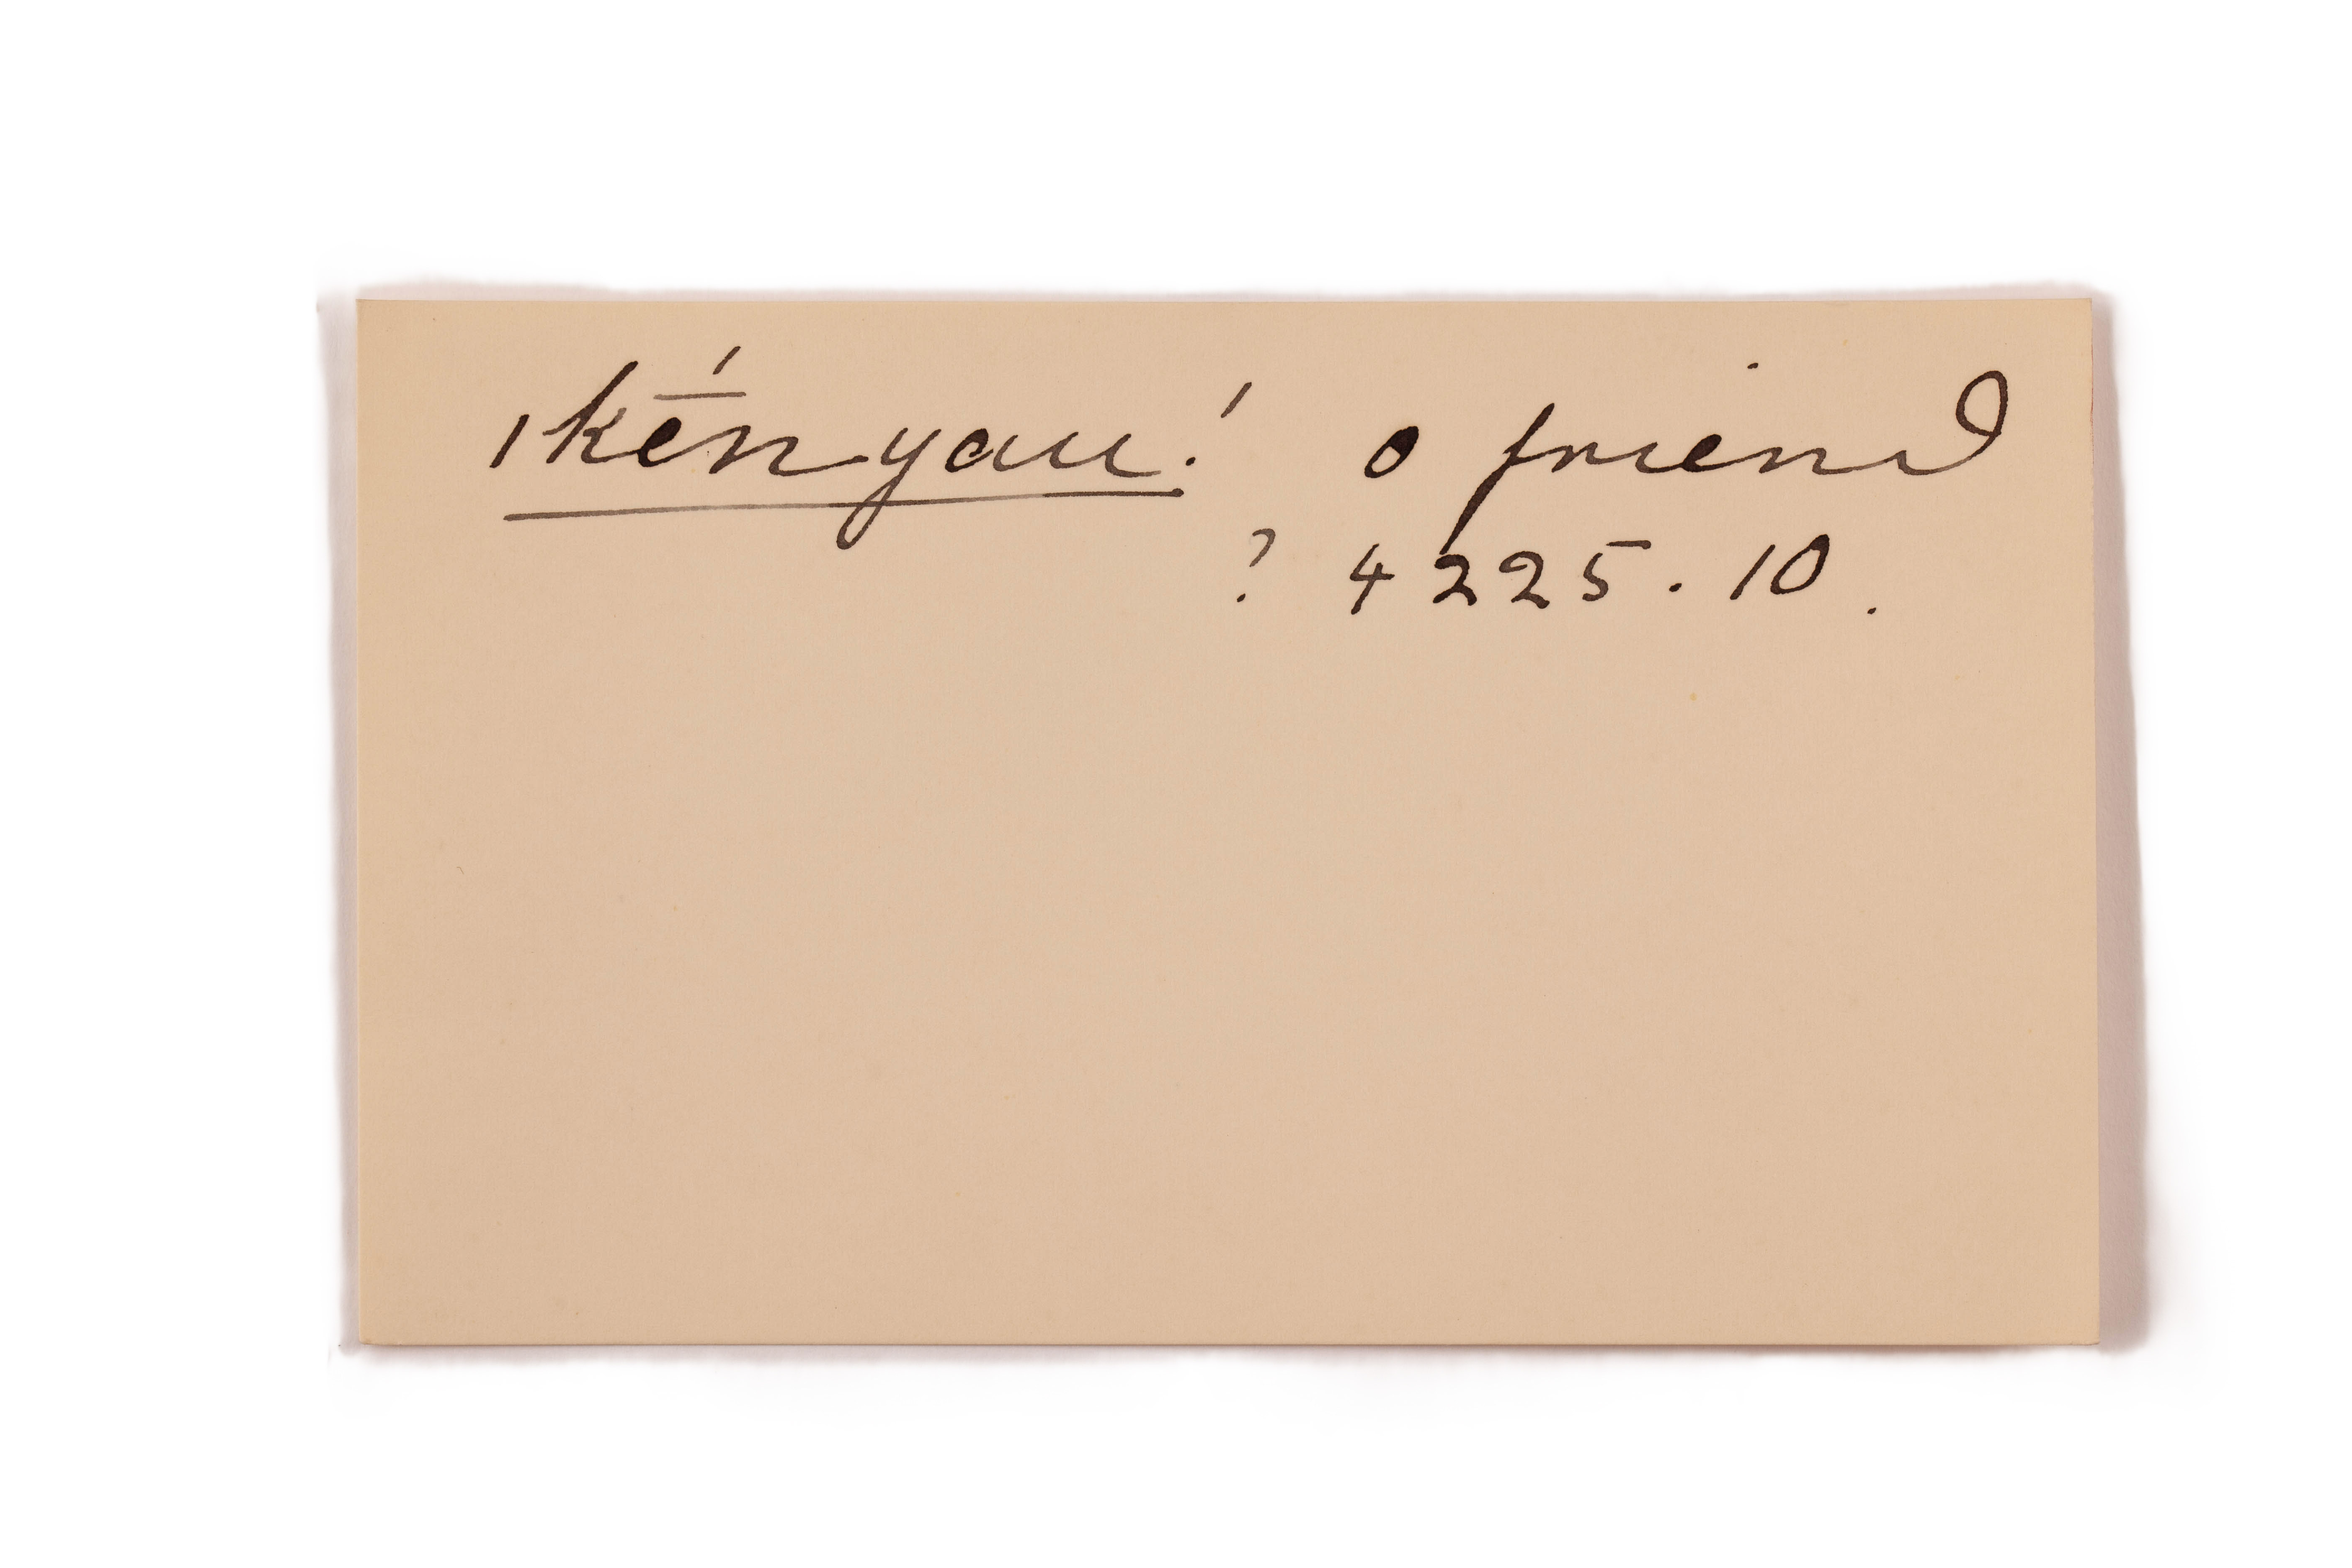 ıkḗnyau! o friend
? 4225. 10.